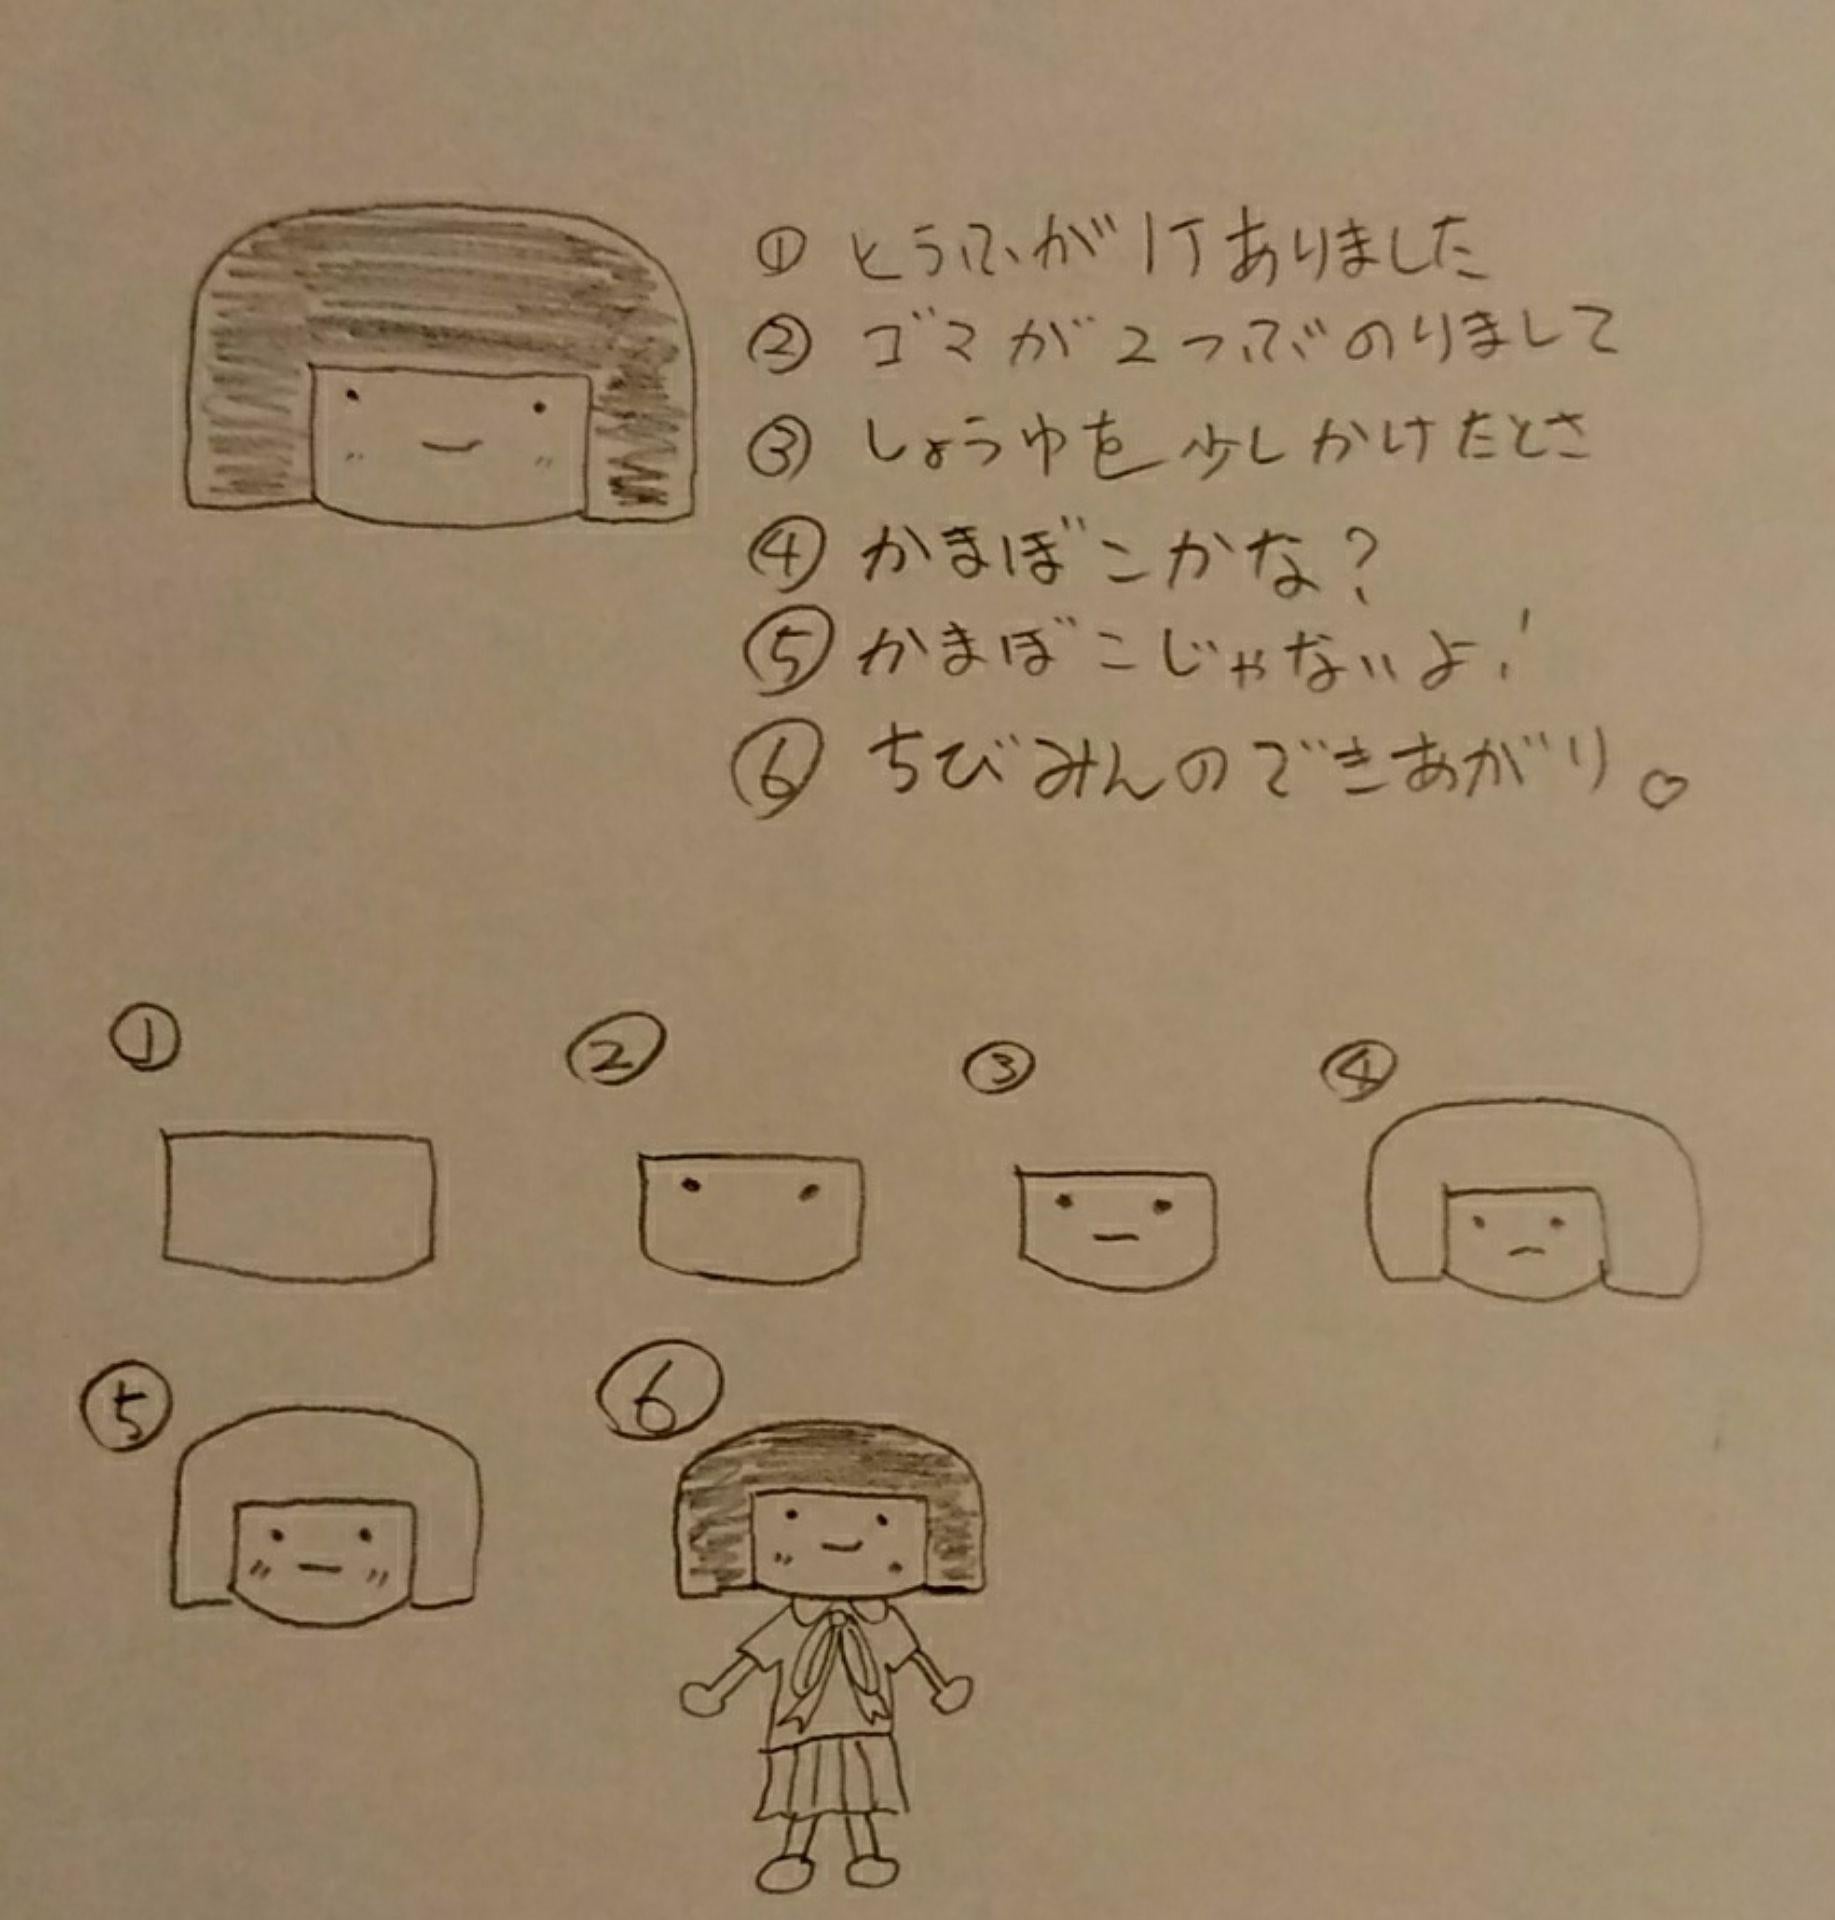 ① とうふが1丁ありました
② ゴマが2つぶのりまして
③ しょうゆを少しかけたとさ
④ かまぼこかな?
⑤ かまぼこじゃないよ!
⑥ ちびみんのできあがり♡
① ② ③ ④
⑤ ⑥